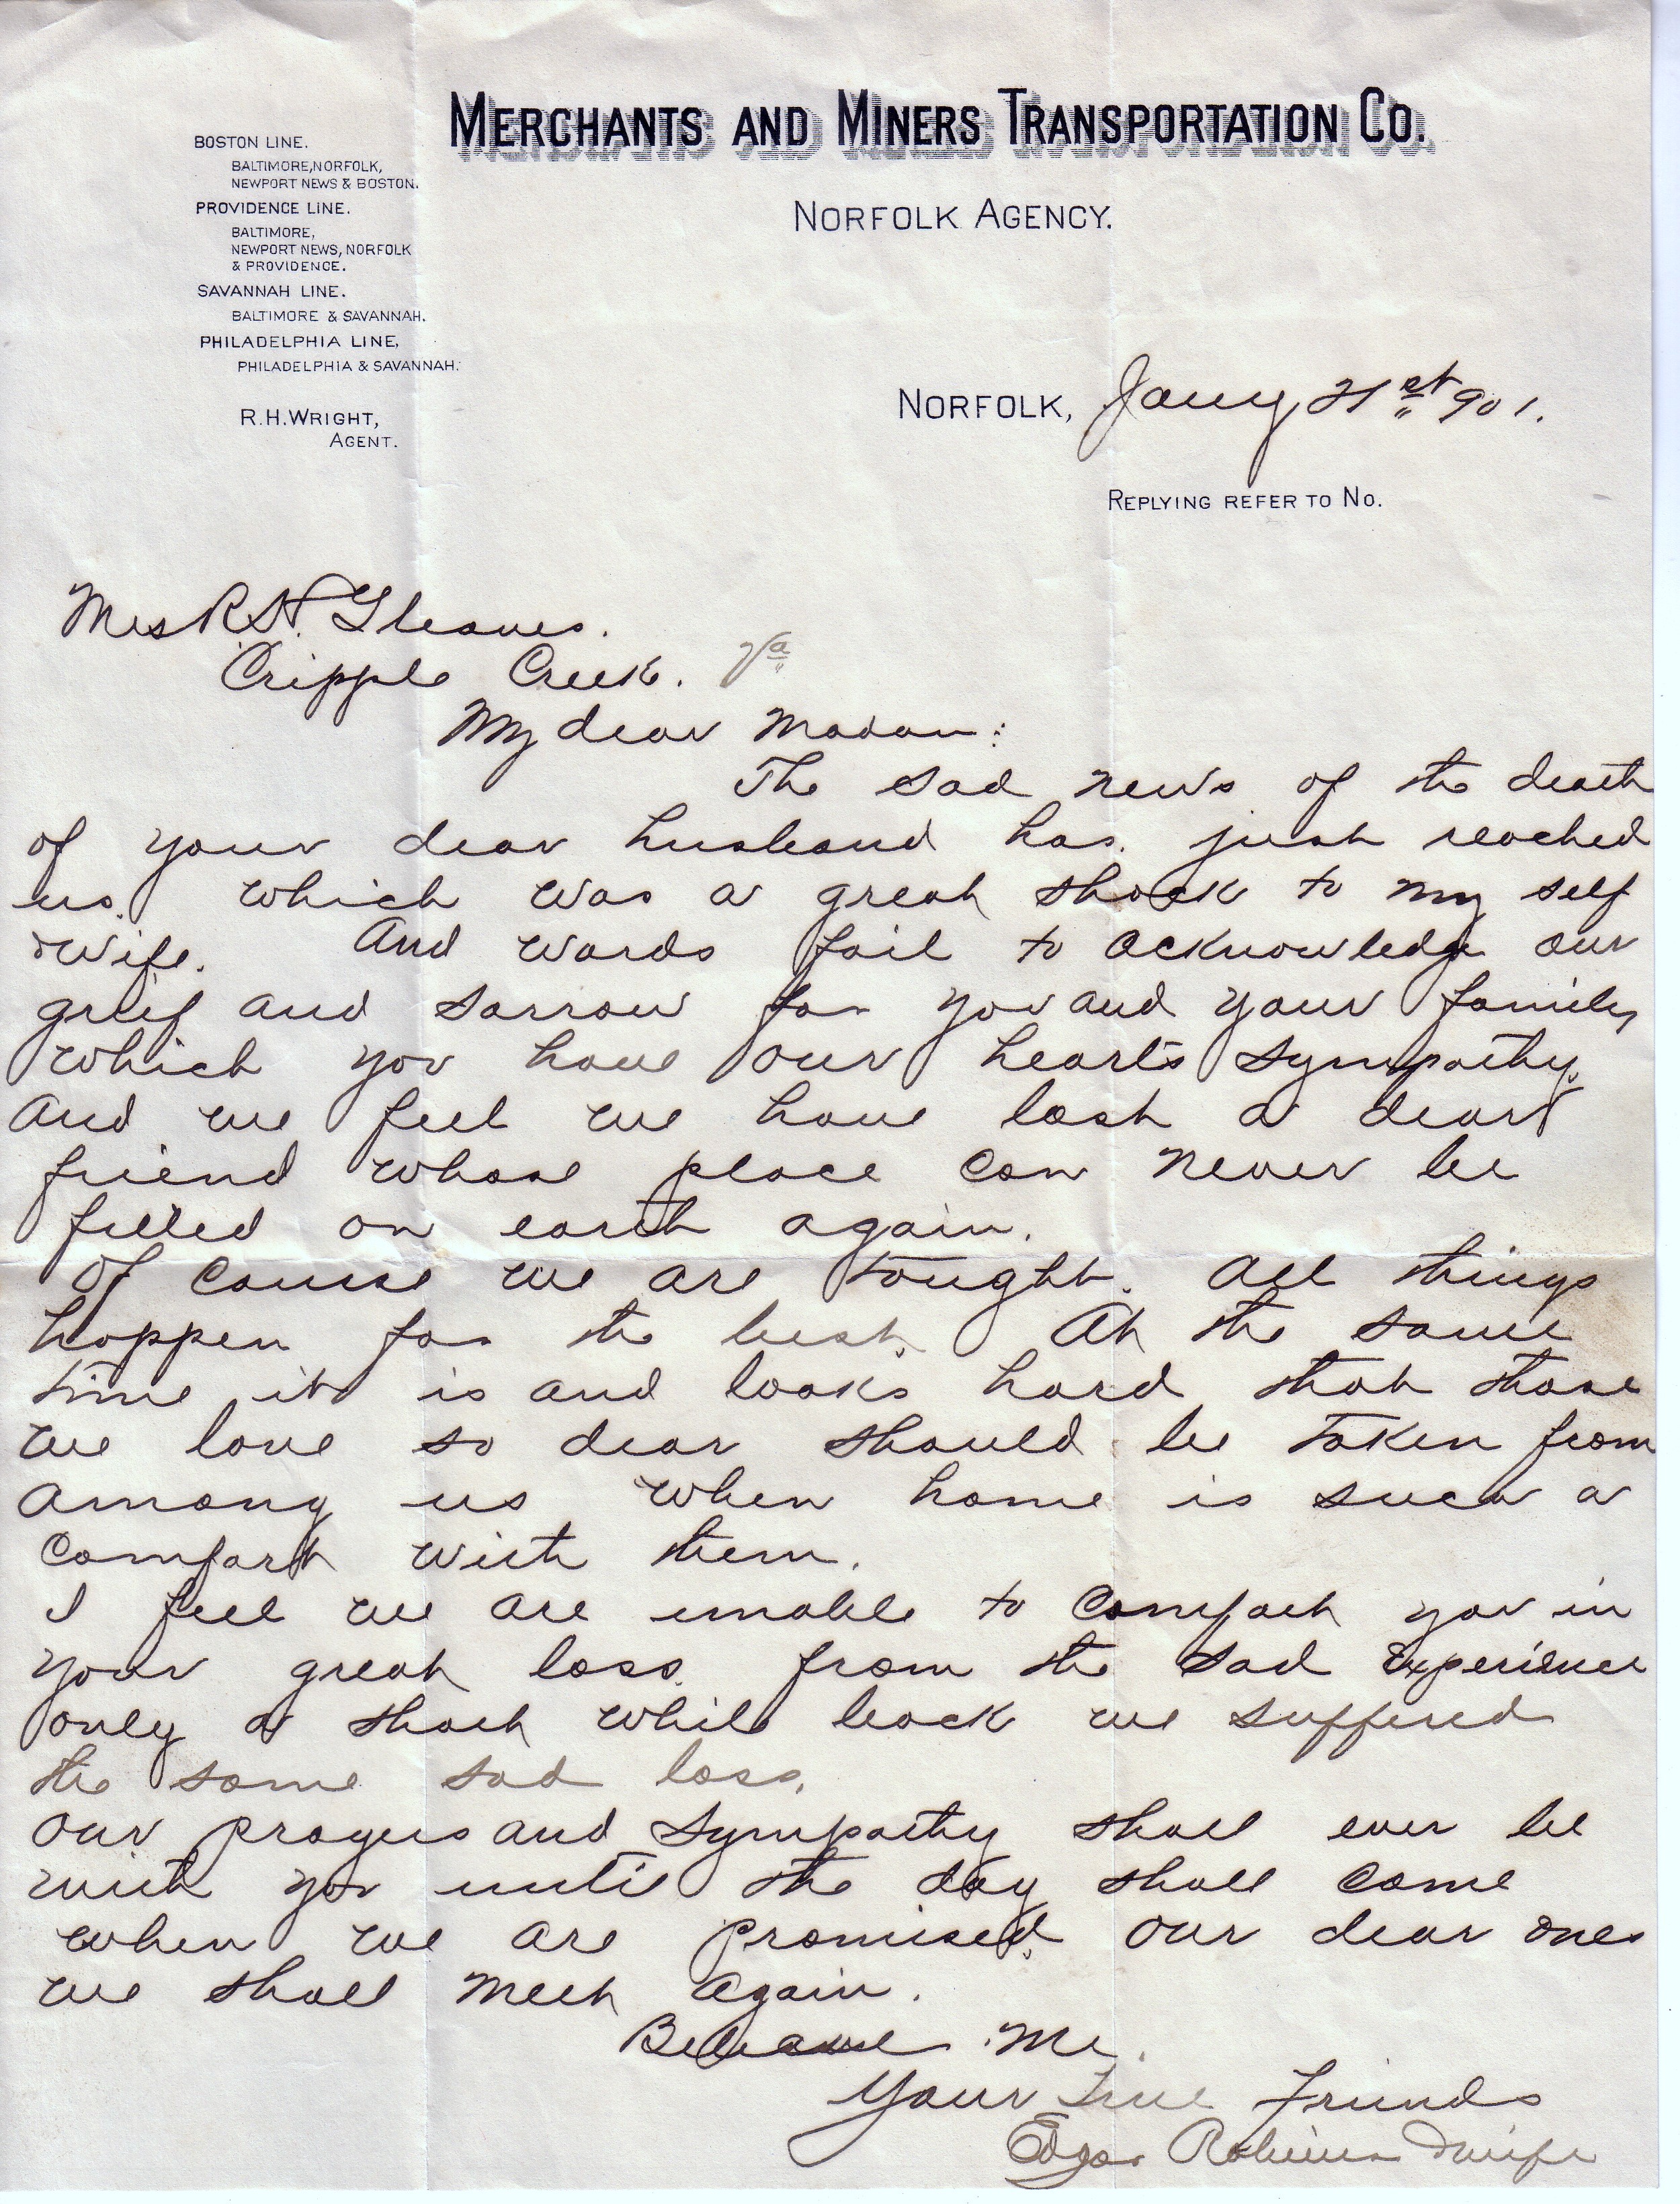 MERCHANTS AND MINERS TRANSPORTATION CO.
NORFOLK AGENCY.
BOSTON LINE.
BALTIMORE, NORFOLK,
NEWPORT NEWS & BOSTON.
PROVIDENCE LINE.
BALTIMORE,
NEWPORT NEWS, NORFOLK
& PROVIDENCE.
SAVANNAH LINE.
BALTIMORE & SAVANNAH.
PHILADELPHIA LINE,
PHILADELPHIA & SAVANNAH.
R.H. WRIGHT,
AGENT.
NORFOLK, Jany 21st 901.
REPLYING REFER TO NO.
Mrs R H. Gleaves.
Cripple Creek. Va
My dear Madam:
The sad news of the death
of your dear husband has just reached
us. which was a great shock to my self
& Wife. And words fail to acknowledge our
grief and sorrow for you and your family
which you have our hearts sympathy.
And we feel we have lost a dear
friend whose place can never be
filled on earth again.
Of course we are tought. All things
happen for the best. At the same
time it is and looks hard that those
we love so dear should be taken from
among us when home is such a
comfort with them.
I feel we are unable to comfort you in
your great loss. from the sad experience
only a short while back we suffered
the same sad loss.
Our prayers and sympathy shall ever be
with you until the day shall come
when we are promised. our dear ones
we shall meet again.
Believe Me.
Your True Friends
Edgar & wife